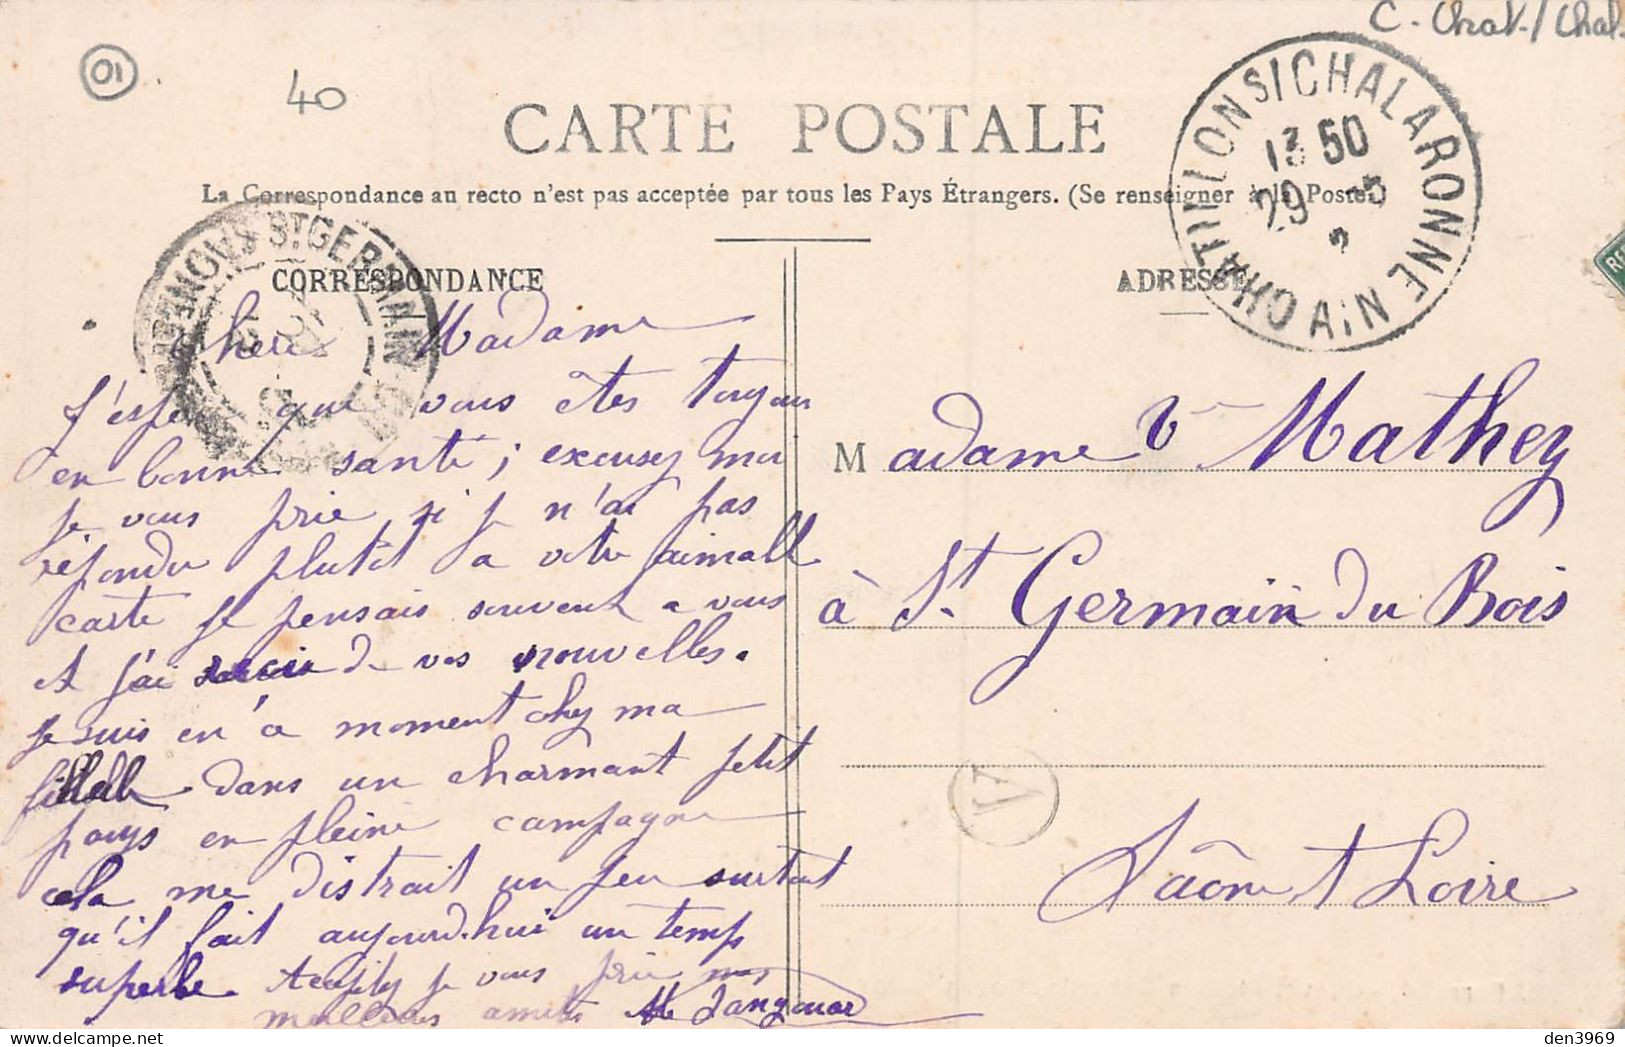 C. Chat./Chal.
01
40
CARTE POSTALE
La Correspondance au recto n'est pas acceptée par tous les Pays Étrangers. (Se renseigner à la Poste.)
CHATILLON S/CHALARONNE
13 50
29
AIN
ST GERMAIN
CORRESPONDANCE
ADRESSE
Chere Madame
J'espere que vous êtes toujour
en bonne santé ; excusez moi
je vous prie si je n'ai pas
répondu plutôt a votre aimable
carte je pensais souvent a vous
et j'ai de vos nouvelles.
je suis en ce moment chez ma
fille dans un charmant petit
pays en pleine campagne
cela me distrait un peu surtout
qu'il fait aujourd'hui un temps
superbe. Acceptez je vous prie mes
meilleures amitiés
Madame Ve Mathey
à St. Germain du Bois
Saône et Loire
A
den3969